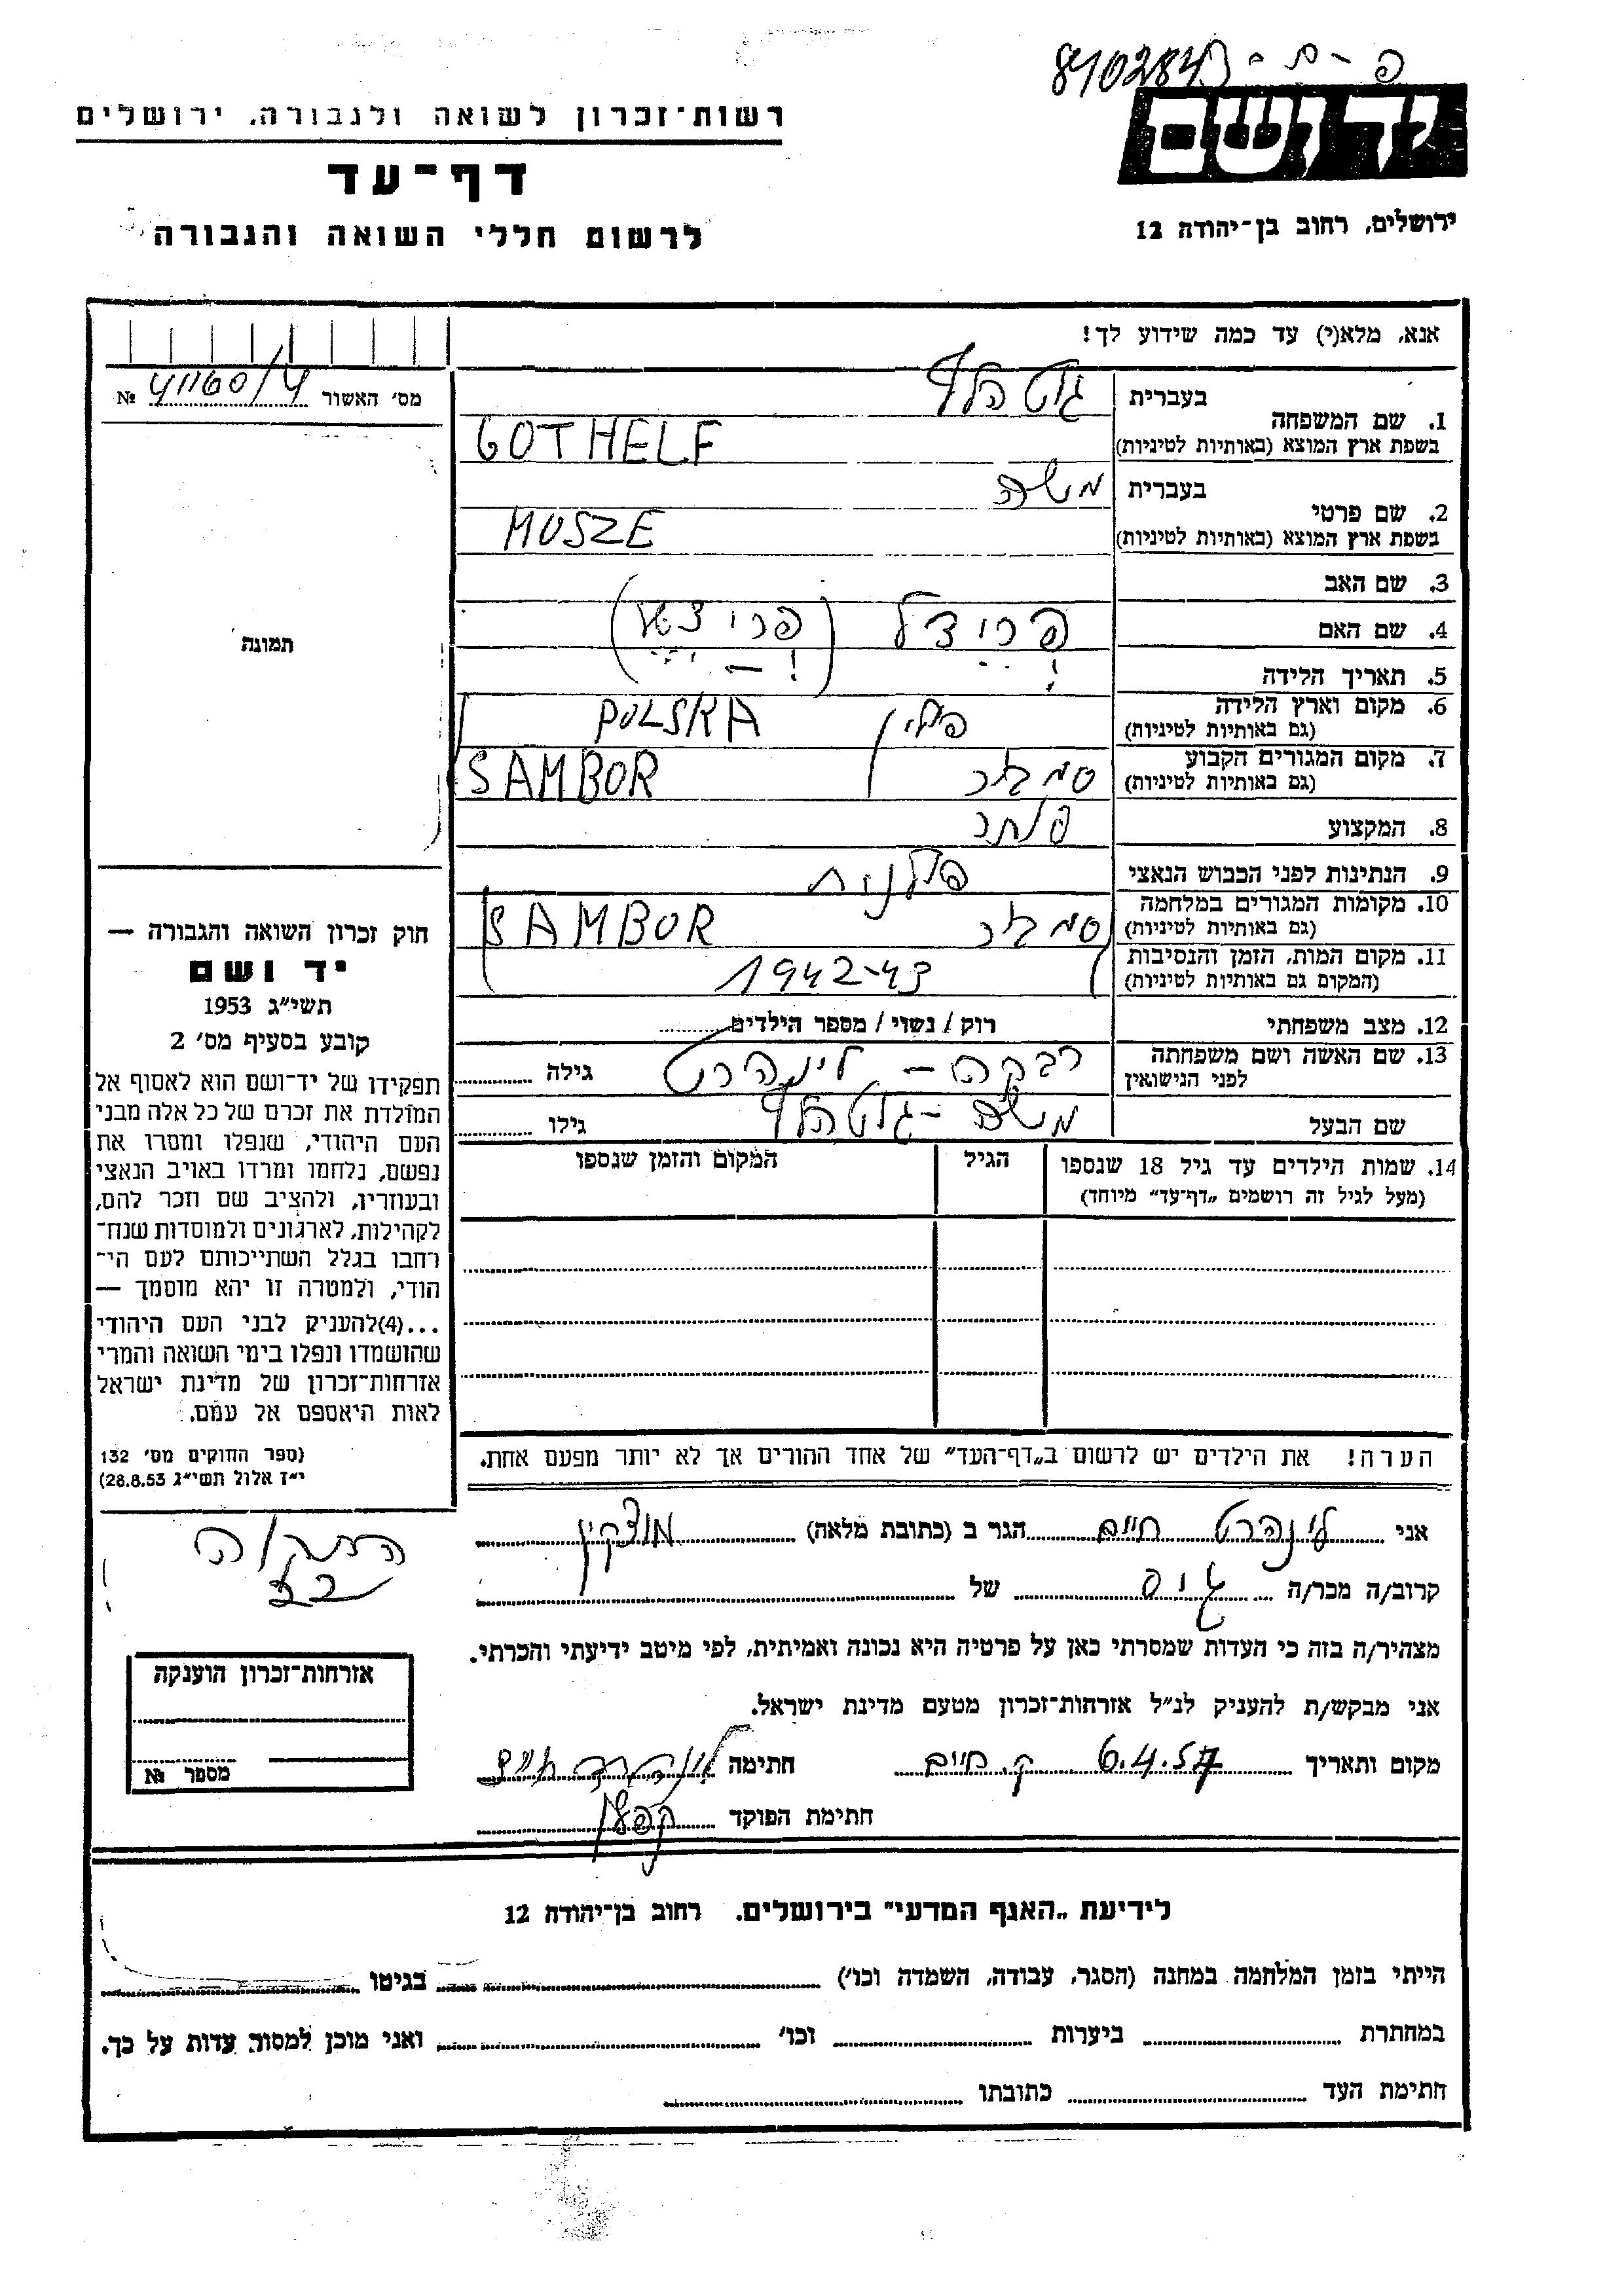 8102843 - ת - פ
יד ושם
רשות-זכרון לשואה ולגבורה, ירושלים
דף-עד
ירושלים, רחוב בן-יהודה 12
לרשום חללי השואה והגבורה
אנא, מלא(י) עד כמה שידוע לך!
מס׳ האשור № 41160/4
1. שם המשפחה
בעברית גוט הלף
בשפת ארץ המוצא (באותיות לטיניות) GOTHELF
2. שם פרטי
בעברית משה
בשפת ארץ המוצא (באותיות לטיניות) MOSZE
3. שם האב
4. שם האם פרידל
5. תאריך הלידה
6. מקום וארץ הלידה
(גם באותיות לטיניות) פולין POLSKA
7. מקום המגורים הקבוע
(גם באותיות לטיניות) סמבור SAMBOR
8. המקצוע סוחר
9. הנתינות לפני הכבוש הנאצי פולנית
10. מקומות המגורים במלחמה
(גם באותיות לטיניות) סמבור SAMBOR
11. מקום המות, הזמן והנסיבות
(המקום גם באותיות לטיניות) 1942-43
12. מצב משפחתי רוק / נשוי / מספר הילדים
13. שם האשה ושם משפחתה
לפני הנישואין רבקה - לינהרט גילה
שם הבעל משה - גוט הלף גילו
14. שמות הילדים עד גיל 18 שנספו
(מעל לגיל זה רושמים „דף-עד״ מיוחד)
הגיל
המקום והזמן שנספו
הערה! את הילדים יש לרשום ב„דף-העד״ של אחד ההורים אך לא יותר מפעם אחת.
תמונה
חוק זכרון השואה והגבורה —
יד ושם
תשי״ג 1953
קובע בסעיף מס׳ 2
תפקידו של יד-ושם הוא לאסוף אל
המולדת את זכרם של כל אלה מבני
העם היהודי, שנפלו ומסרו את
נפשם, נלחמו ומרדו באויב הנאצי
ובעוזריו, ולהציב שם וזכר להם,
לקהילות, לארגונים ולמוסדות שנח-
רחבו בגלל השתייכותם לעם הי-
הודי, ולמטרה זו יהא מוסמך —
...(4)להעניק לבני העם היהודי
שהושמדו ונפלו בימי השואה והמרי
אזרחות-זכרון של מדינת ישראל
לאות היאספם אל עמם.
(ספר החוקים מס׳ 132
י״ז אלול תשי״ג 28.8.53)
אני לינהרט חיים הגר ב (כתובת מלאה) מוצקין
התקוה
22
קרוב/ה מכר/ה גיס של
מצהיר/ה בזה כי העדות שמסרתי כאן על פרטיה היא נכונה ואמיתית, לפי מיטב ידיעתי והכרתי.
אני מבקש/ת להעניק לנ״ל אזרחות-זכרון מטעם מדינת ישראל.
מקום ותאריך ק. חיים 6.4.57 חתימה לינהרט חיים
חתימת הפוקד
אזרחות-זכרון הוענקה
מספר №
לידיעת „האגף המדעי״ בירושלים. רחוב בן-יהודה 12
הייתי בזמן המלחמה במחנה (הסגר, עבודה, השמדה וכו׳) בגיטו
במחתרת ביערות וכו׳ ואני מוכן למסור עדות על כך.
חתימת העד כתובתו